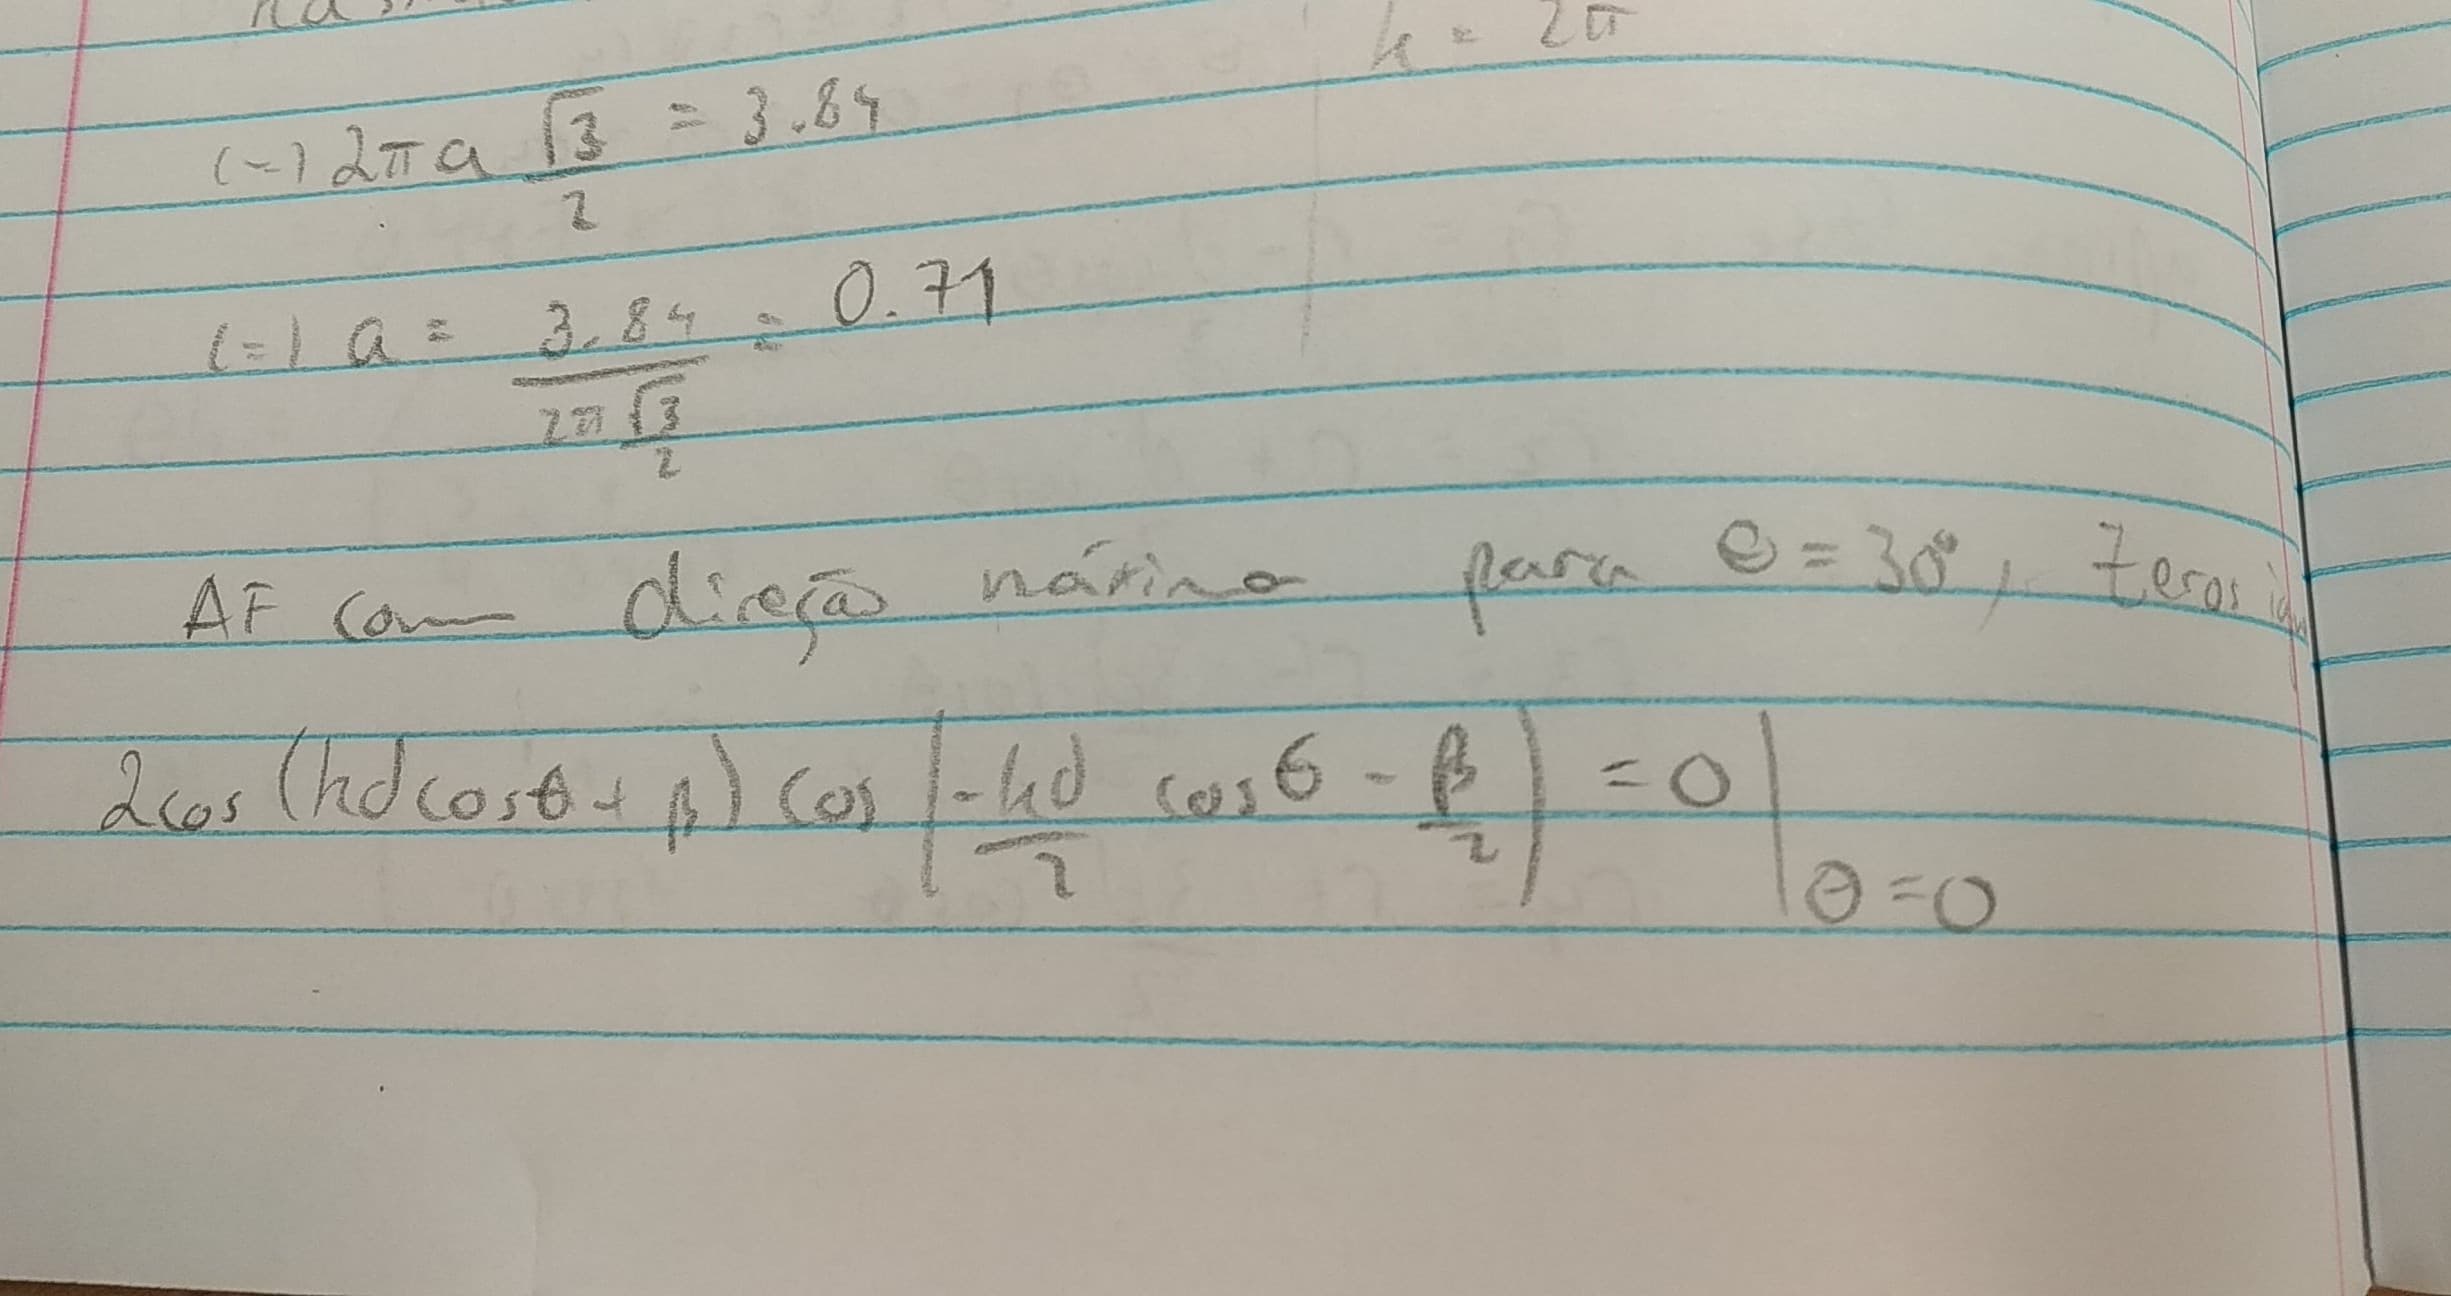 k = 2π
(=) 2πa √3/2 = 3.84
(=) a = 3.84 / (2π √3/2) = 0.71
AF com direção máxima para θ = 30°, zeros
2cos (kd cosθ + β) cos (-kd/2 cosθ - β/2) = 0 | θ=0